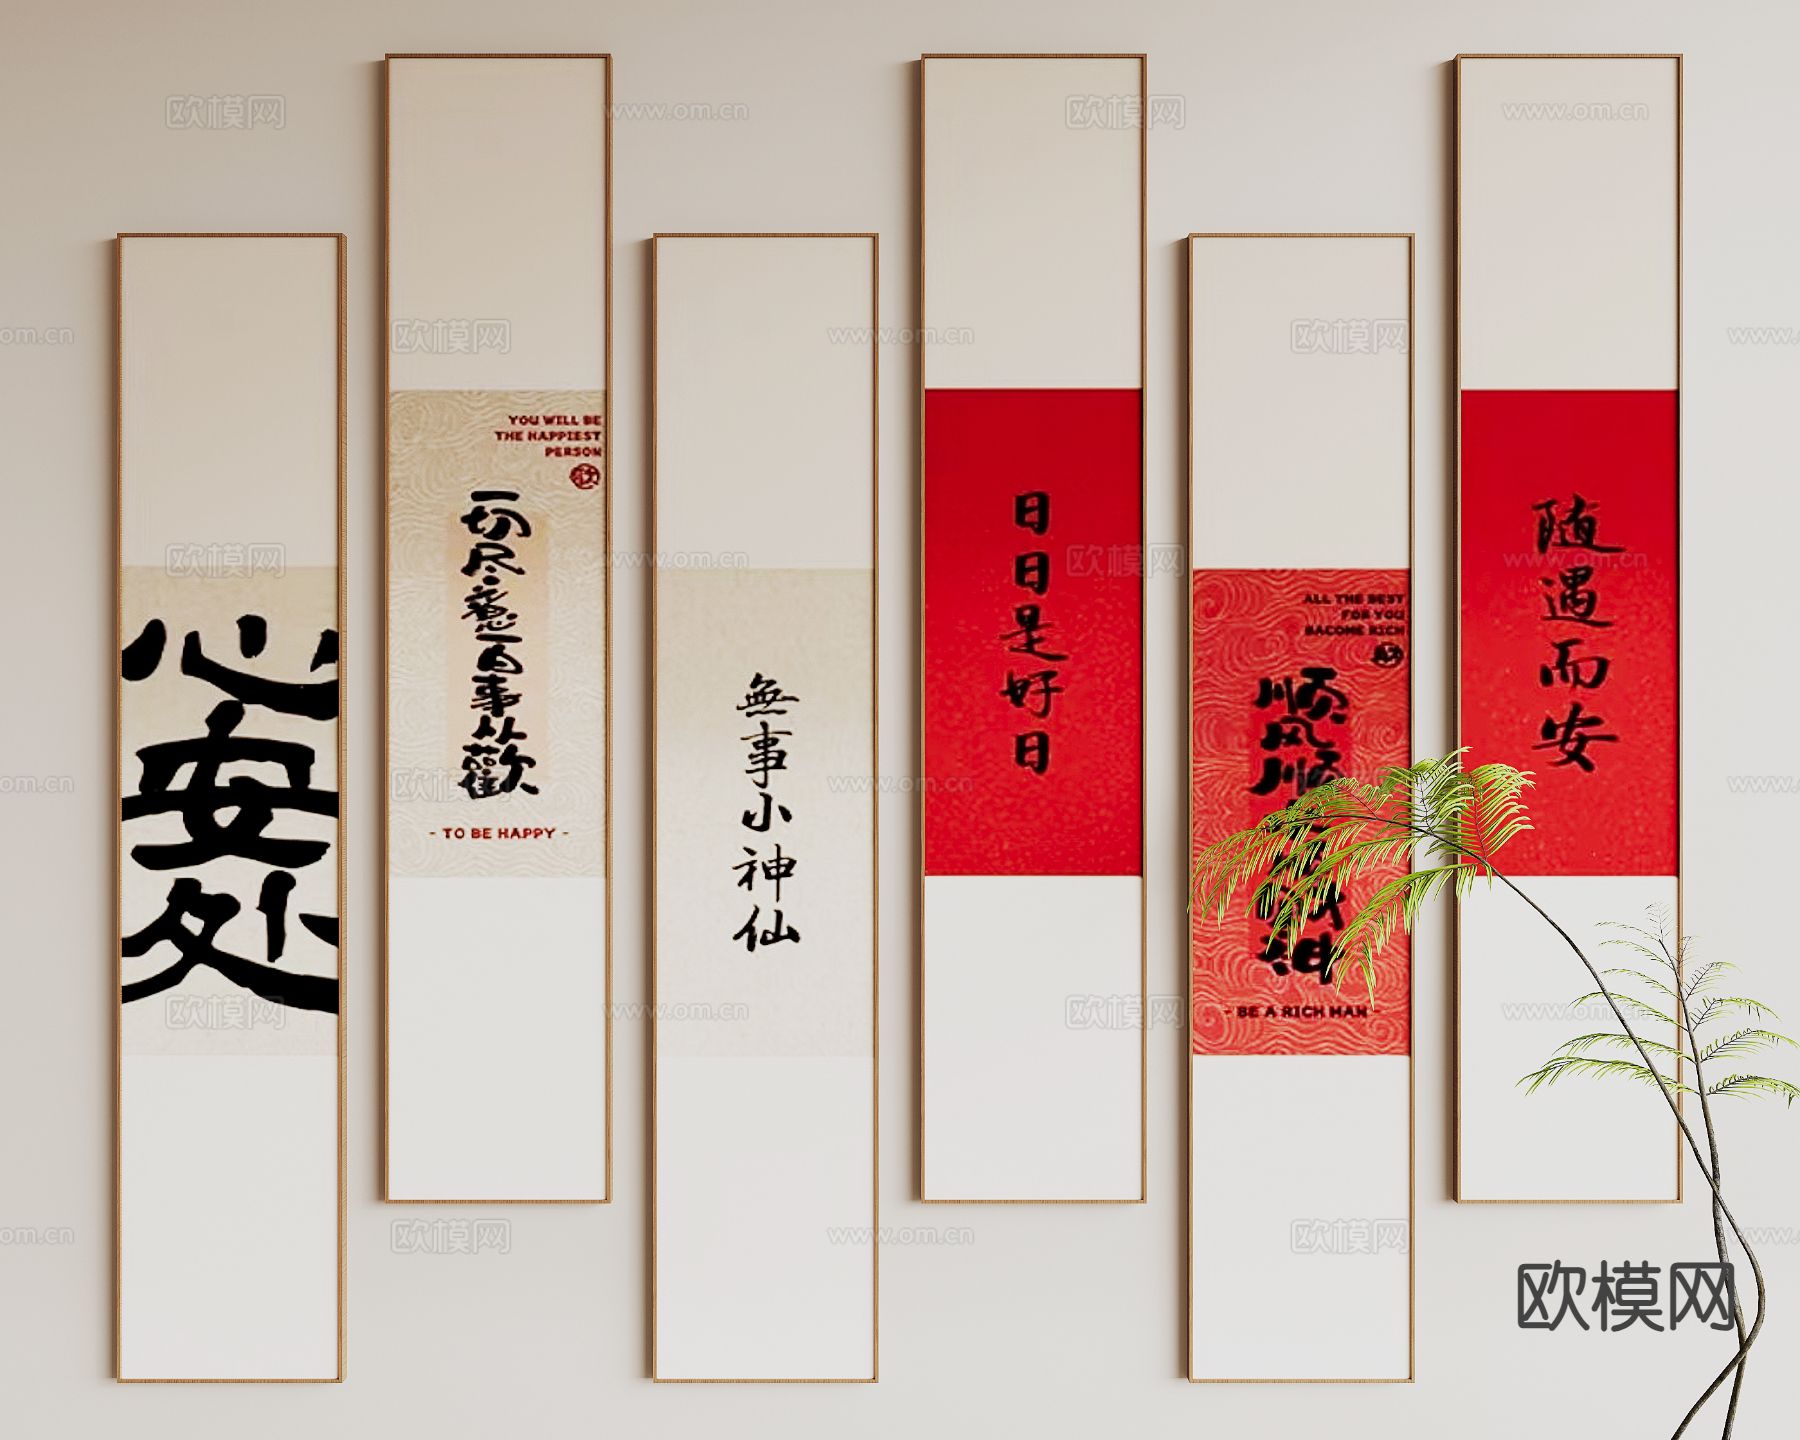 心安处
YOU WILL BE
THE HAPPIEST
PERSON
一切尽意百事从歡
- TO BE HAPPY -
無事小神仙
日日是好日
ALL THE BEST
FOR YOU
BACOME RICH
顺风顺
神
- BE A RICH MAN -
随遇而安
欧模网
www.om.cn
欧模网